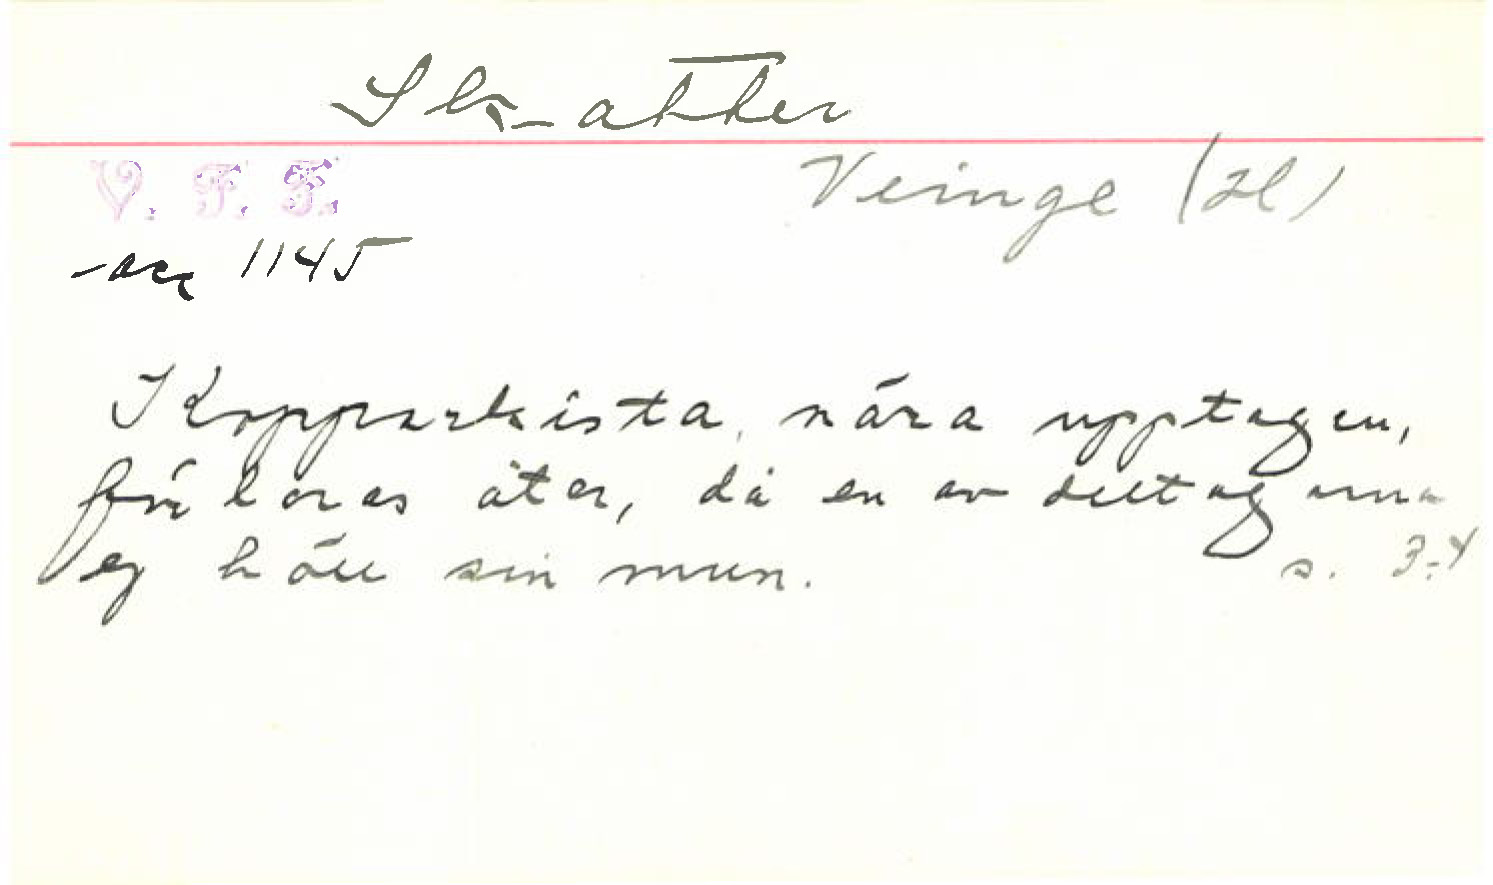 Skatter
V. F. F.
Veinge (Hl)
acc 1145
Kopparkista, nära upptagen,
förloras åter, då en av deltagarna
ej höll sin mun.
s. 3-4